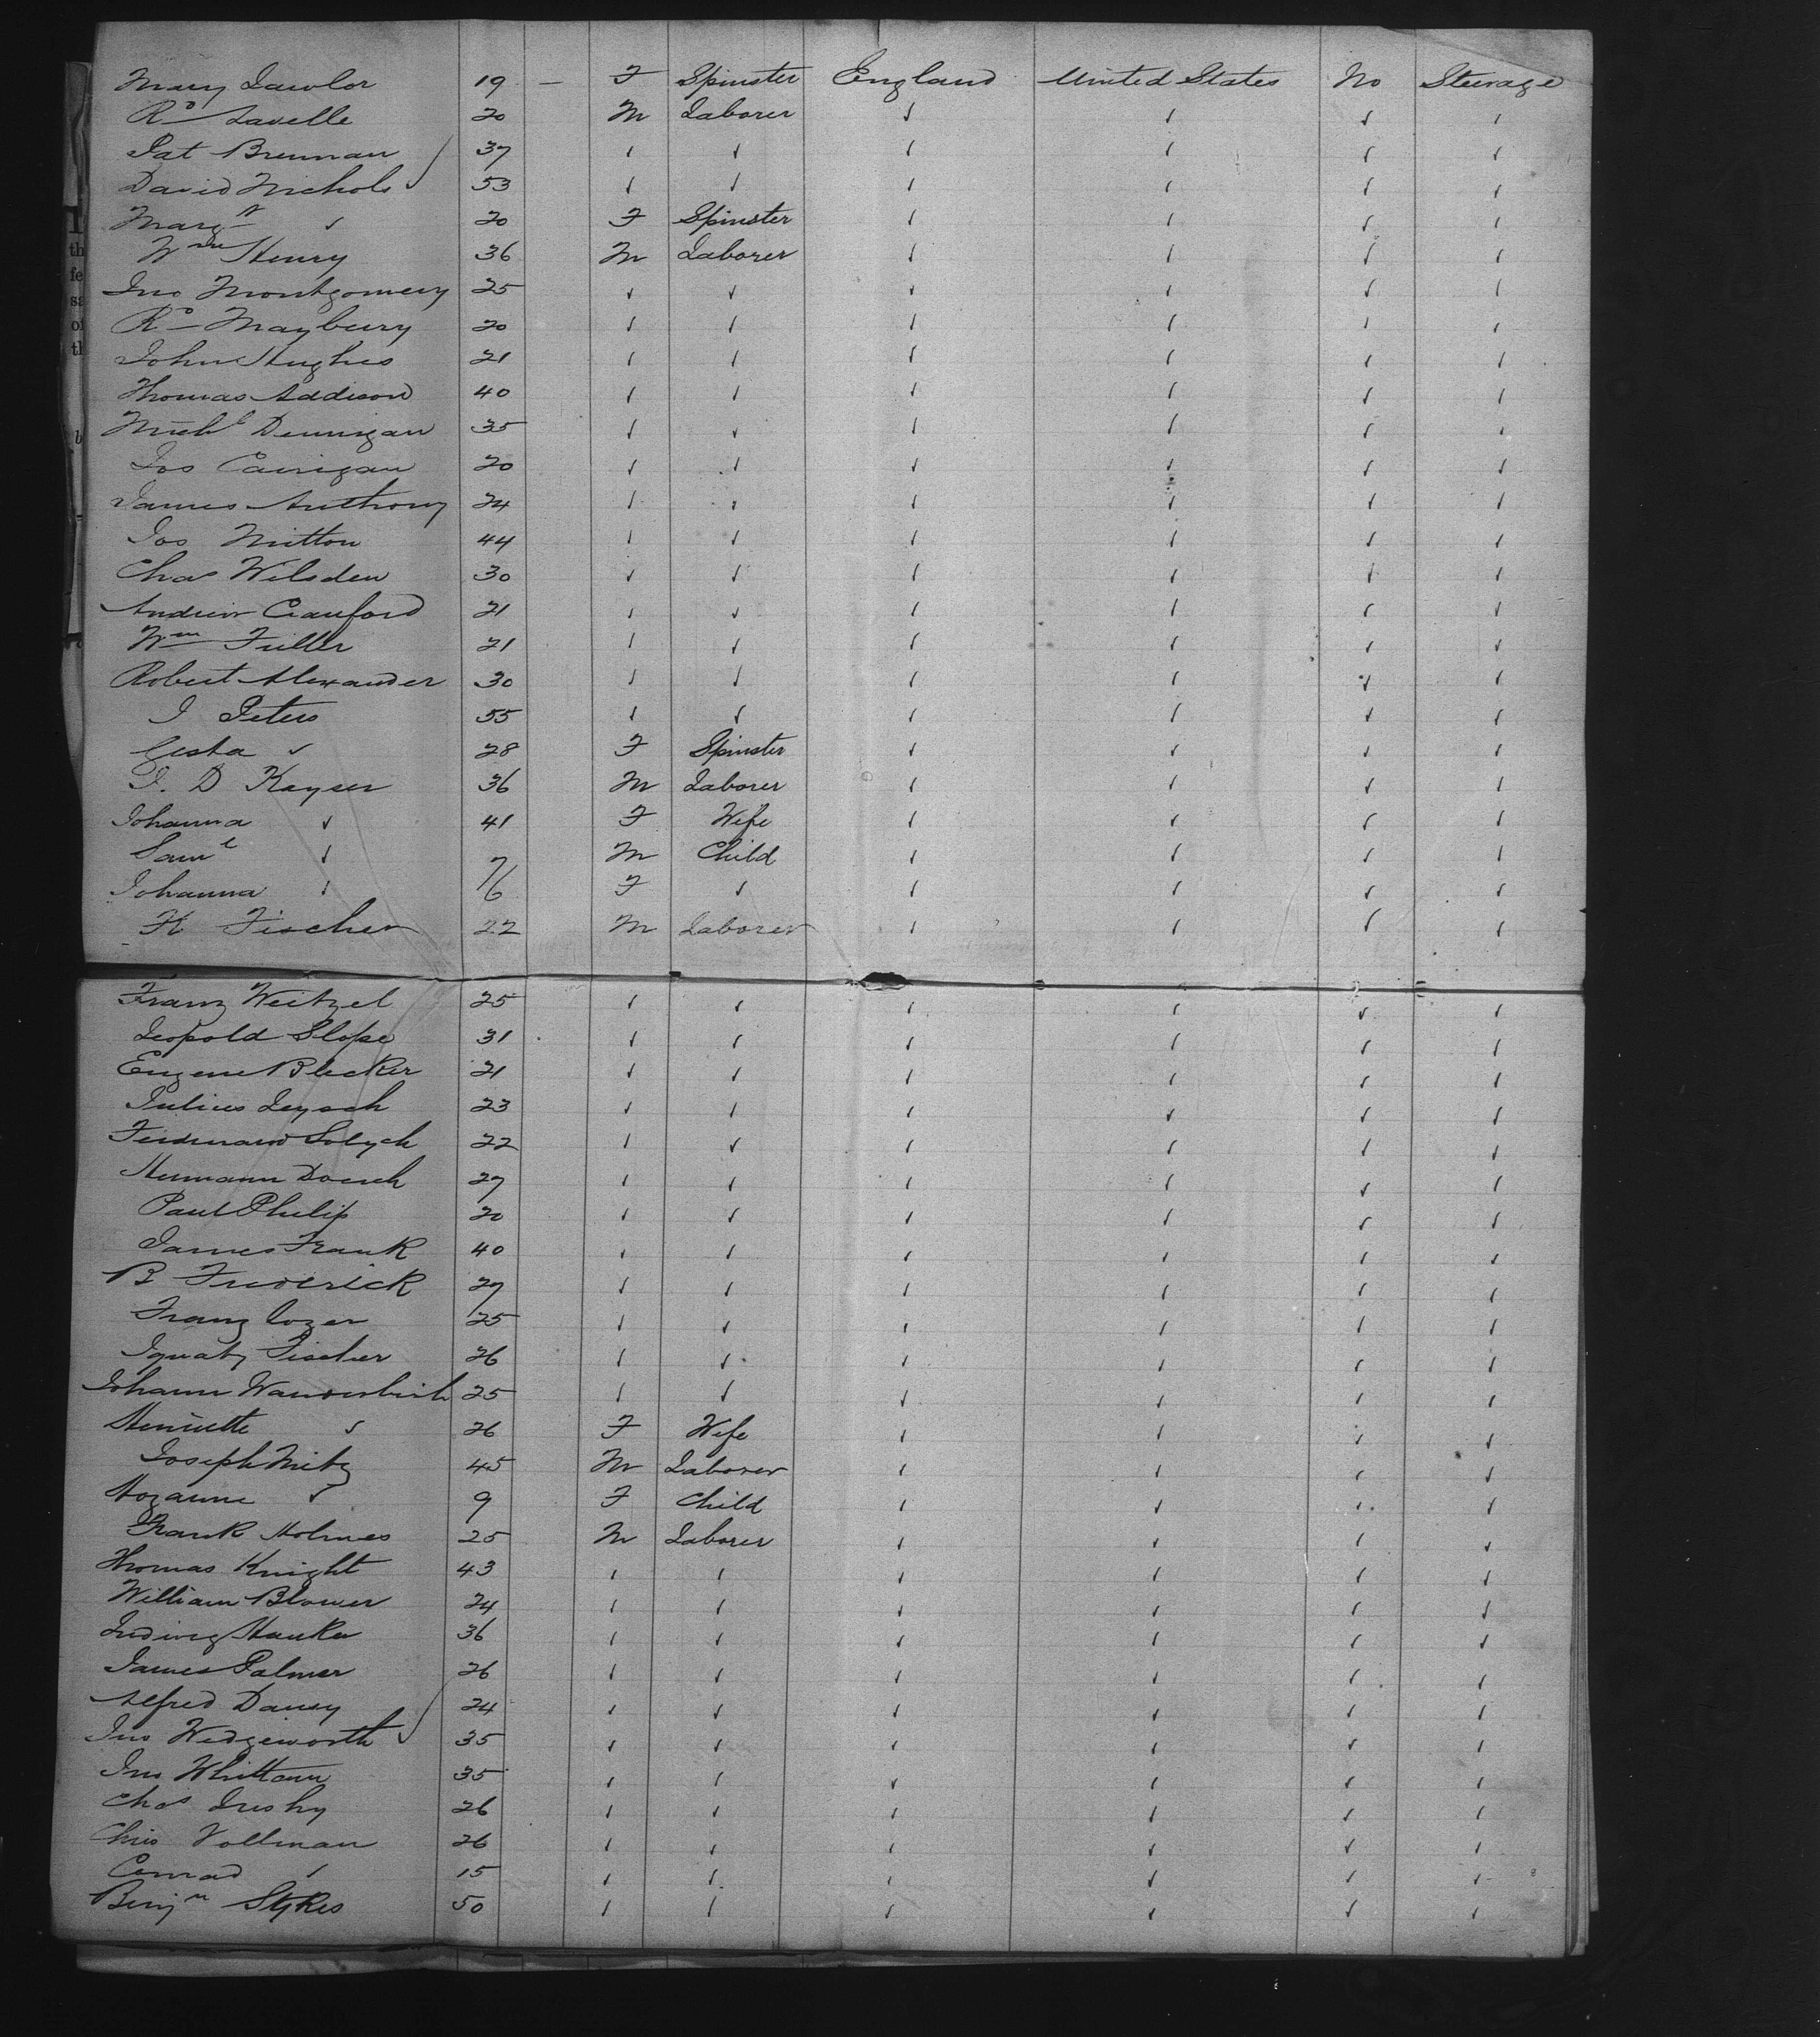 Mary Lawlor 19 — F Spinster England United States No Steerage
Rd Lavelle 20 M Laborer ✓ ✓ ✓ ✓
Pat Brennan 37 ✓ ✓ ✓ ✓ ✓ ✓
David Nichols 53 ✓ ✓ ✓ ✓ ✓ ✓
Margt ✓ 20 F Spinster ✓ ✓ ✓ ✓
Wm Henry 36 M Laborer ✓ ✓ ✓ ✓
Jno Montgomery 25 ✓ ✓ ✓ ✓ ✓ ✓
Rd Mayberry 20 ✓ ✓ ✓ ✓ ✓ ✓
John Hughes 21 ✓ ✓ ✓ ✓ ✓ ✓
Thomas Addison 40 ✓ ✓ ✓ ✓ ✓ ✓
Michl Dunnigan 35 ✓ ✓ ✓ ✓ ✓ ✓
Jos Carrigan 20 ✓ ✓ ✓ ✓ ✓ ✓
James Anthony 24 ✓ ✓ ✓ ✓ ✓ ✓
Jos Mitton 44 ✓ ✓ ✓ ✓ ✓ ✓
Chas Wilsden 30 ✓ ✓ ✓ ✓ ✓ ✓
Andrew Crauford 21 ✓ ✓ ✓ ✓ ✓ ✓
Wm Fuller 21 ✓ ✓ ✓ ✓ ✓ ✓
Robert Alexander 30 ✓ ✓ ✓ ✓ ✓ ✓
J Peters 55 ✓ ✓ ✓ ✓ ✓ ✓
Gesha ✓ 28 F Spinster ✓ ✓ ✓ ✓
J. D Kayser 36 M Laborer ✓ ✓ ✓ ✓
Johanna ✓ 41 F Wife ✓ ✓ ✓ ✓
Saml ✓ 7 M Child ✓ ✓ ✓ ✓
Johanna ✓ 6 F ✓ ✓ ✓ ✓ ✓
H Fischer 22 M Laborer ✓ ✓ ✓ ✓
Franz Weitzel 25 ✓ ✓ ✓ ✓ ✓ ✓
Leopold Slope 31 ✓ ✓ ✓ ✓ ✓ ✓
Eugene Blecker 21 ✓ ✓ ✓ ✓ ✓ ✓
Julius Leysch 23 ✓ ✓ ✓ ✓ ✓ ✓
Ferdinand Solych 22 ✓ ✓ ✓ ✓ ✓ ✓
Hermann Doersh 27 ✓ ✓ ✓ ✓ ✓ ✓
Paul Philip 20 ✓ ✓ ✓ ✓ ✓ ✓
James Frank 40 ✓ ✓ ✓ ✓ ✓ ✓
B Frederick 27 ✓ ✓ ✓ ✓ ✓ ✓
Franz Cozer 25 ✓ ✓ ✓ ✓ ✓ ✓
Ignatz Fischer 26 ✓ ✓ ✓ ✓ ✓ ✓
Johann Wanderbirh 25 ✓ ✓ ✓ ✓ ✓ ✓
Henriette ✓ 26 F Wife ✓ ✓ ✓ ✓
Joseph Mitz 45 M Laborer ✓ ✓ ✓ ✓
Hozanne ✓ 9 F Child ✓ ✓ ✓ ✓
Frank Holmes 25 M Laborer ✓ ✓ ✓ ✓
Thomas Knight 43 ✓ ✓ ✓ ✓ ✓ ✓
William Blower 24 ✓ ✓ ✓ ✓ ✓ ✓
Ludwig Hanka 36 ✓ ✓ ✓ ✓ ✓ ✓
James Palmer 26 ✓ ✓ ✓ ✓ ✓ ✓
Alfred Dancy 24 ✓ ✓ ✓ ✓ ✓ ✓
Jno Wedgeworth 35 ✓ ✓ ✓ ✓ ✓ ✓
Jno Whittam 35 ✓ ✓ ✓ ✓ ✓ ✓
Chas 26 ✓ ✓ ✓ ✓ ✓ ✓
Chris Vollman 26 ✓ ✓ ✓ ✓ ✓ ✓
Conrad ✓ 15 ✓ ✓ ✓ ✓ ✓ ✓
Benjn Sykes 50 ✓ ✓ ✓ ✓ ✓ ✓